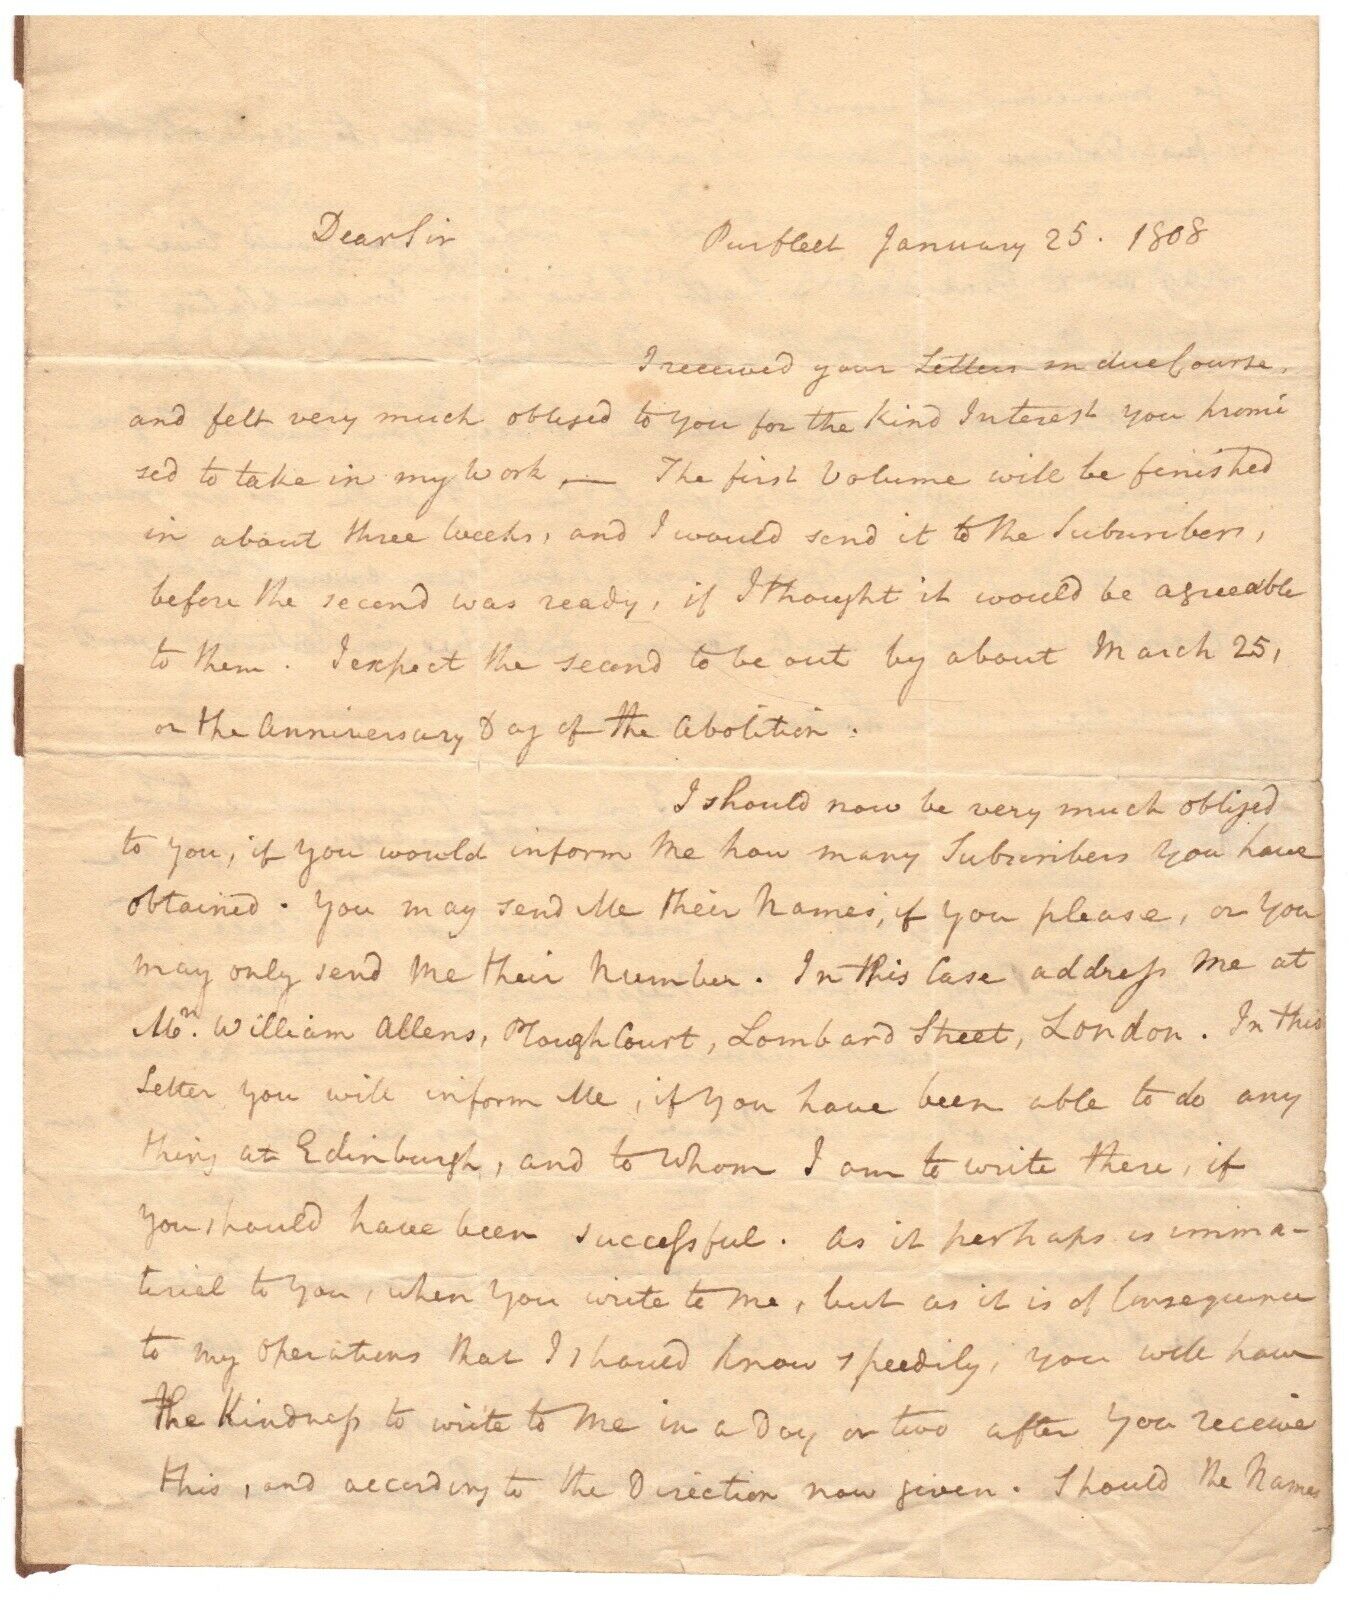 Dear Sir Purfleet January 25. 1808
I received your Letters in due Course,
and felt very much obliged to you for the kind Interest you promi
sed to take in my Work, — The first Volume will be finished
in about three Weeks, and I would send it to the Subscribers,
before the second was ready, if I thought it would be agreeable
to them. I expect the second to be out by about March 25,
or the Anniversary Day of the Abolition.
I should now be very much obliged
to you, if you would inform Me how many Subscribers you have
obtained. You may send Me their Names, if you please, or you
may only send Me their Number. In this Case address Me at
Mr. William Allens, Plough Court, Lombard Street, London. In this
Letter you will inform Me, if you have been able to do any
thing at Edinburgh, and to whom I am to write there, if
you should have been successful. As it perhaps is imma-
terial to you, when you write to Me, but as it is of Consequence
to my operations that I should know speedily, you will have
the Kindness to write to Me in a Day or two after you receive
this, and according to the Direction now given. Should the Names